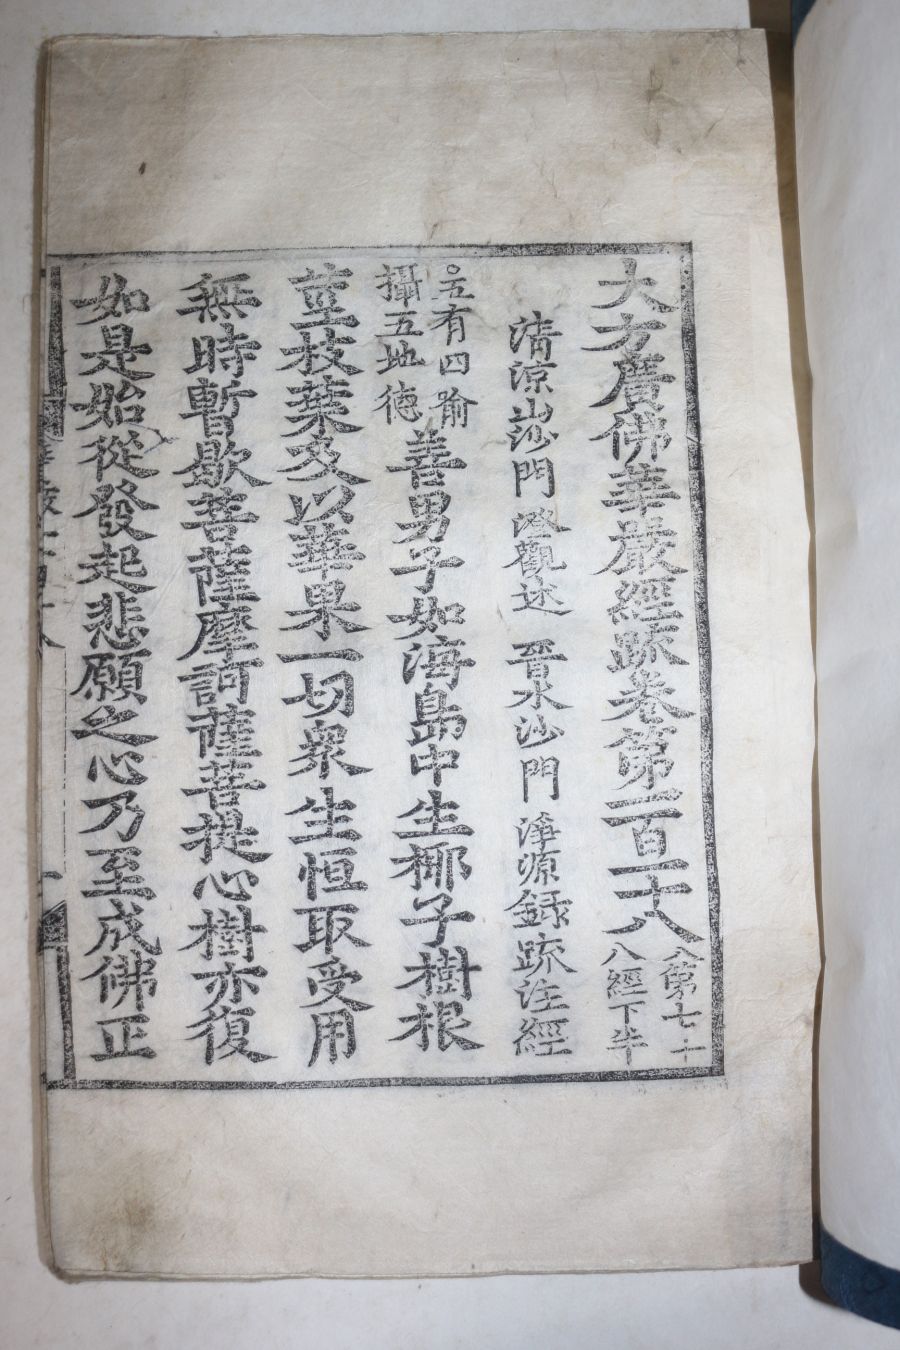 大方廣佛華嚴經疏卷第一百一十八
入第七十
八經下半
清涼山沙門 澄觀述 晉水沙門 淨源録疏注經
○五有四喻
攝五地德
善男子如海島中生椰子樹根
莖枝葉及以華果一切衆生恒取受用
無時暫歇菩薩摩訶薩菩提心樹亦復
如是始從發起悲願之心乃至成佛正